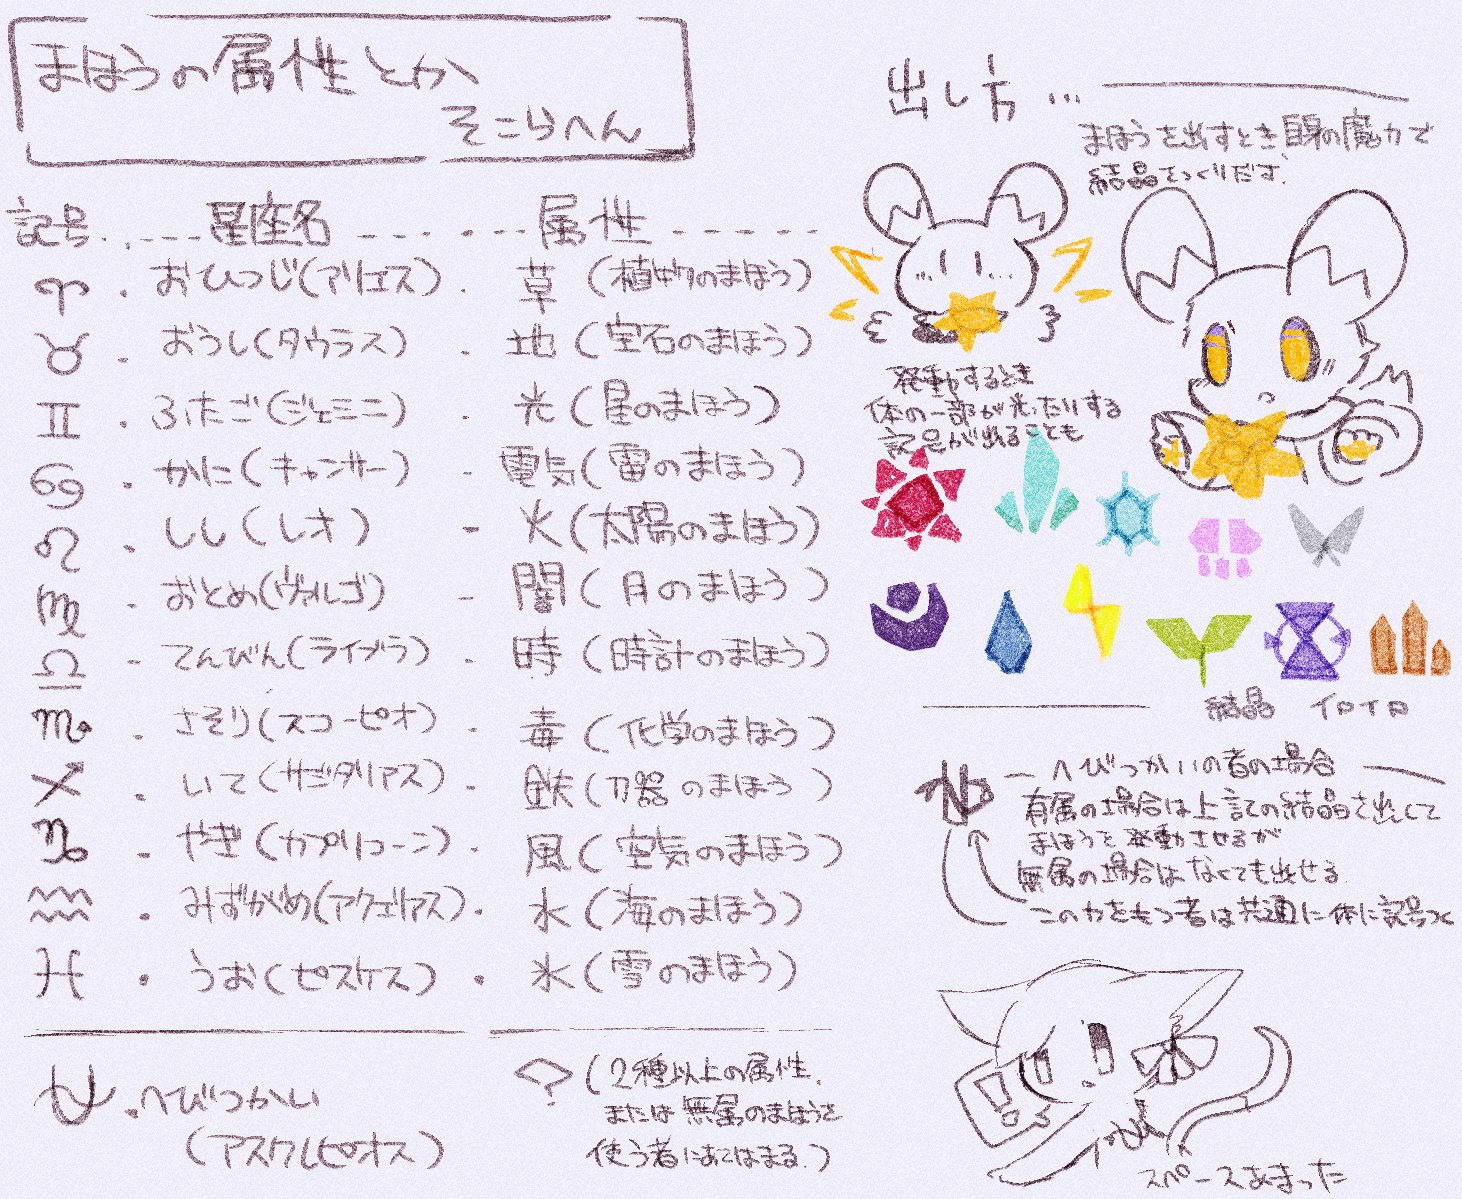 まほうの属性とか
そこらへん
記号 星座名 属性
♈ おひつじ(アリエス) 草 (植物のまほう)
♉ おうし(タウラス) 地 (宝石のまほう)
♊ ふたご(ジェミニ) 光 (星のまほう)
♋ かに(キャンサー) 電気(雷のまほう)
♌ しし(レオ) 火(太陽のまほう)
♍ おとめ(ヴァルゴ) 闇(月のまほう)
♎ てんびん(ライブラ) 時(時計のまほう)
♏ さそり(スコーピオ) 毒(化学のまほう)
♐ いて(サジタリアス) 鉄(刀器のまほう)
♑ やぎ(カプリコーン) 風(空気のまほう)
♒ みずがめ(アクエリアス) 水(海のまほう)
♓ うお(ピスケス) 氷(雪のまほう)
へびつかい
(アスクレピオス)
? (2種以上の属性、
または無属のまほうを
使う者にあてはまる。)
出し方…
まほうを出すとき自身の魔力で
結晶をつくりだす。
発動するとき
体の一部が光ったりする
記号が出ることも
結晶 イロイロ
へびつかいの者の場合
有属の場合は上記の結晶を出して
まほうを発動させるが
無属の場合はなくても出せる
この力をもつ者は共通に体に記号つく
スペースあまった